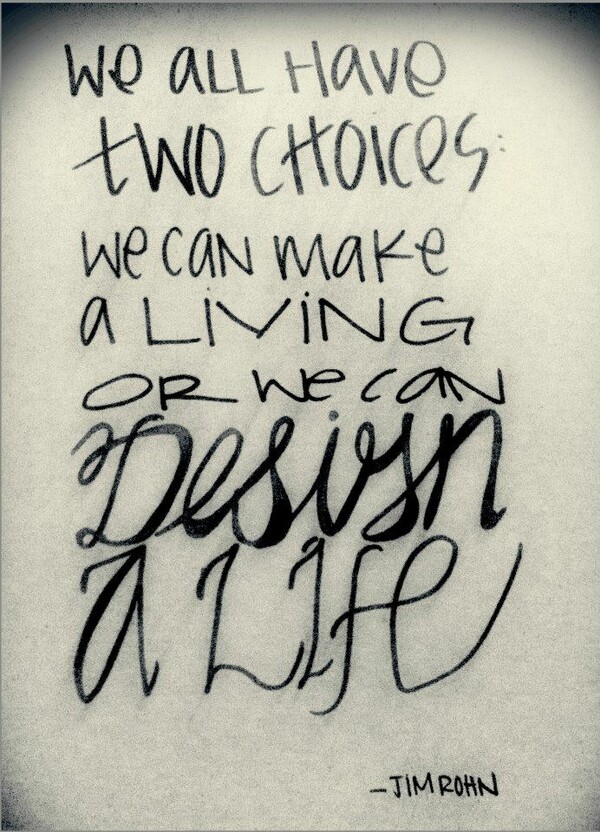 We all have
two choices:
we can make
a living
or we can
Design
a life
-JIM ROHN